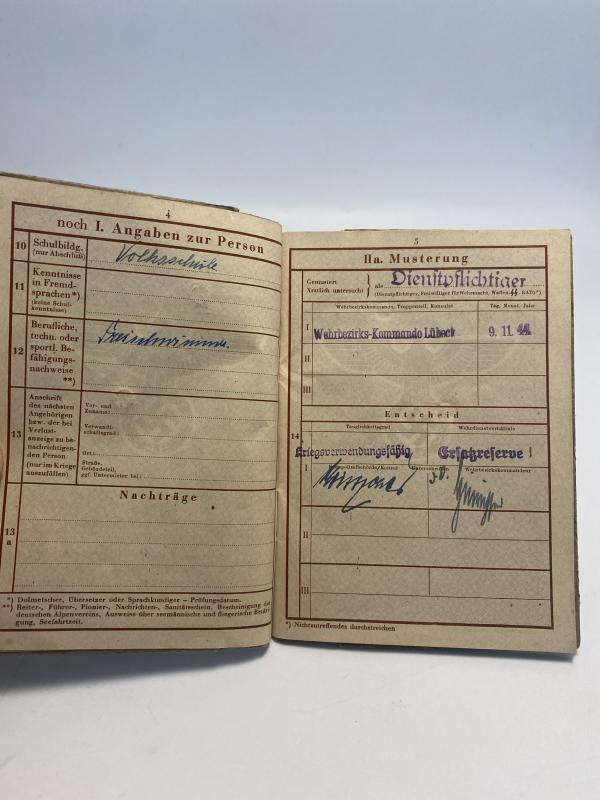 4
noch I. Angaben zur Person
10 Schulbildg.
(nur Abschluß)
Volksschule
11 Kenntnisse
in Fremd-
sprachen*)
(keine Schul-
kenntnisse)
12 Berufliche,
techn. oder
sportl. Be-
fähigungs-
nachweise
**)
Freischwimmer.
13 Anschrift
des nächsten
Angehörigen
bzw. der bei
Verlust-
anzeige zu be-
nachrichtigen-
den Person
(nur im Kriege
auszufüllen)
Vor- und
Zuname:
Verwandt-
schaftsgrad:
Ort:
Straße,
Gebäudeteil,
ggf. Untermieter bei:
Nachträge
13
a
*) Dolmetscher, Übersetzer oder Sprachkundiger – Prüfungsdatum.
**) Reiter-, Führer-, Pionier-, Nachrichten-, Sanitätsschein, Bescheinigung des
deutschen Alpenvereins, Ausweise über seemännische und fliegerische
gung, Seefahrtzeit.
5
IIa. Musterung
Gemustert
Ärztlich untersucht
als Dienstpflichtiger
(Dienstpflichtiger, Freiwilliger für Wehrmacht, Waffen-SS, RAD)*)
Wehrbezirkskommando, Truppenteil, Konsulat
Tag, Monat, Jahr
I
Wehrbezirks-Kommando Lübeck
9. 11. 44
II
III
Entscheid
14
Tauglichkeitsgrad
Wehrdienstverhältnis
Kriegsverwendungsfähig
Ersatzreserve I
I
Wehrbezirkskommandeur
II
III
*) Nichtzutreffendes durchstreichen